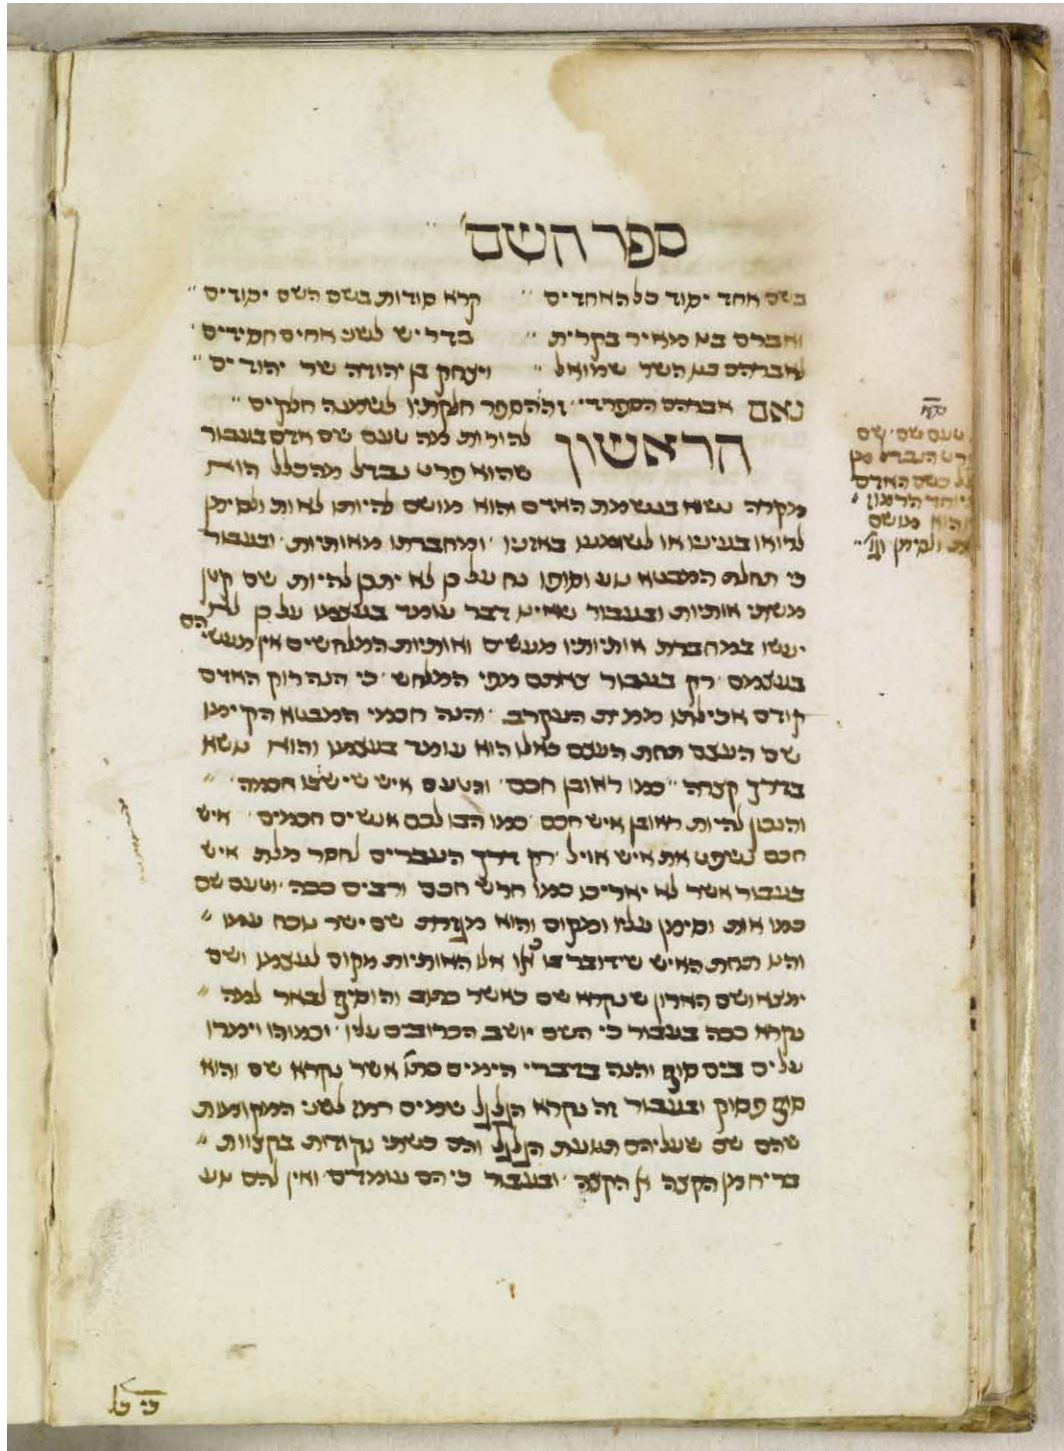 ספר השם
בשם אחד יסוד כל האחדים קרא סודות בשם השם יסודים
ואברם בא מאיר בקרית בדרש לשני אחים חסידים
לאברהם השר שמואל ויצחק בן יהודה שר יהודים
נאם אברהם הספרדי וזה הספר חלקתיו לשמנה חלקים
הראשון להורות מה טעם שם אדם בעבור
שהוא פרט נבדל מהכלל הוא
מקרה נשוא בנשמת האדם והוא מושם להיותו לאות ולסימן
לרואו בעיניו או לשומעו באזניו ומחברתו מאותיות ובעבור
כי תחלת המבטא נע וסופו נח על כן לא יתכן להיות שם קטן
משתי אותיות ובעבור שאינו דבר עומד בעצמו על כן לא
יעשו במחברת אותיותיו מעשים ואותיות המלחשים אין מעשיהם
בעצמם רק בעבור צאתם מפי המלחש כי הנה רוק האדם
קודם אכילתו ממית העקרב והנה חכמי המבטא הקימו
שם העצם תחת העצם כאלו הוא עומד בעצמו והוא נושא
בדרך קצרה כמו ראובן חכם וטעם איש שיש בו חכמה
והנכון להיות ראובן איש חכם כמו הבו לכם אנשים חכמים איש
חכם נשפט את איש אויל רק דרך העברים לחסר מלת איש
בעבור אשר לא יאריכו כמו חרש חכם ורבים ככה וטעם שם
כמו אות וסימן ומקום והוא מגזרת שם ישר נוכח עמו
והנו תחת האיש שידובר בו או אלו האותיות מקום לעצמו ושם
ימצא ושם הארון שנקרא שם כאשר כתוב והוסיף לבאר למה
נקרא ככה בעבור כי השם יושב הכרובים עליו וכמוהו וימרו
על ים בים סוף והנה בדברי הימים כתוב אשר נקרא שם והוא
סוף פסוק ובעבור זה נקרא הגלגל שמים רמז לשני המקומות
שהם שם שעליהם תנועת הגלגל והם כשתי נקודות בקצוות
בריח מן הקצה אל הקצה ובעבור כי הם עומדים ואין להם נוע
טעם שם שם
פרט הנבדל מן
כשם האדם
והוא מושם
ולסימן
כי כל